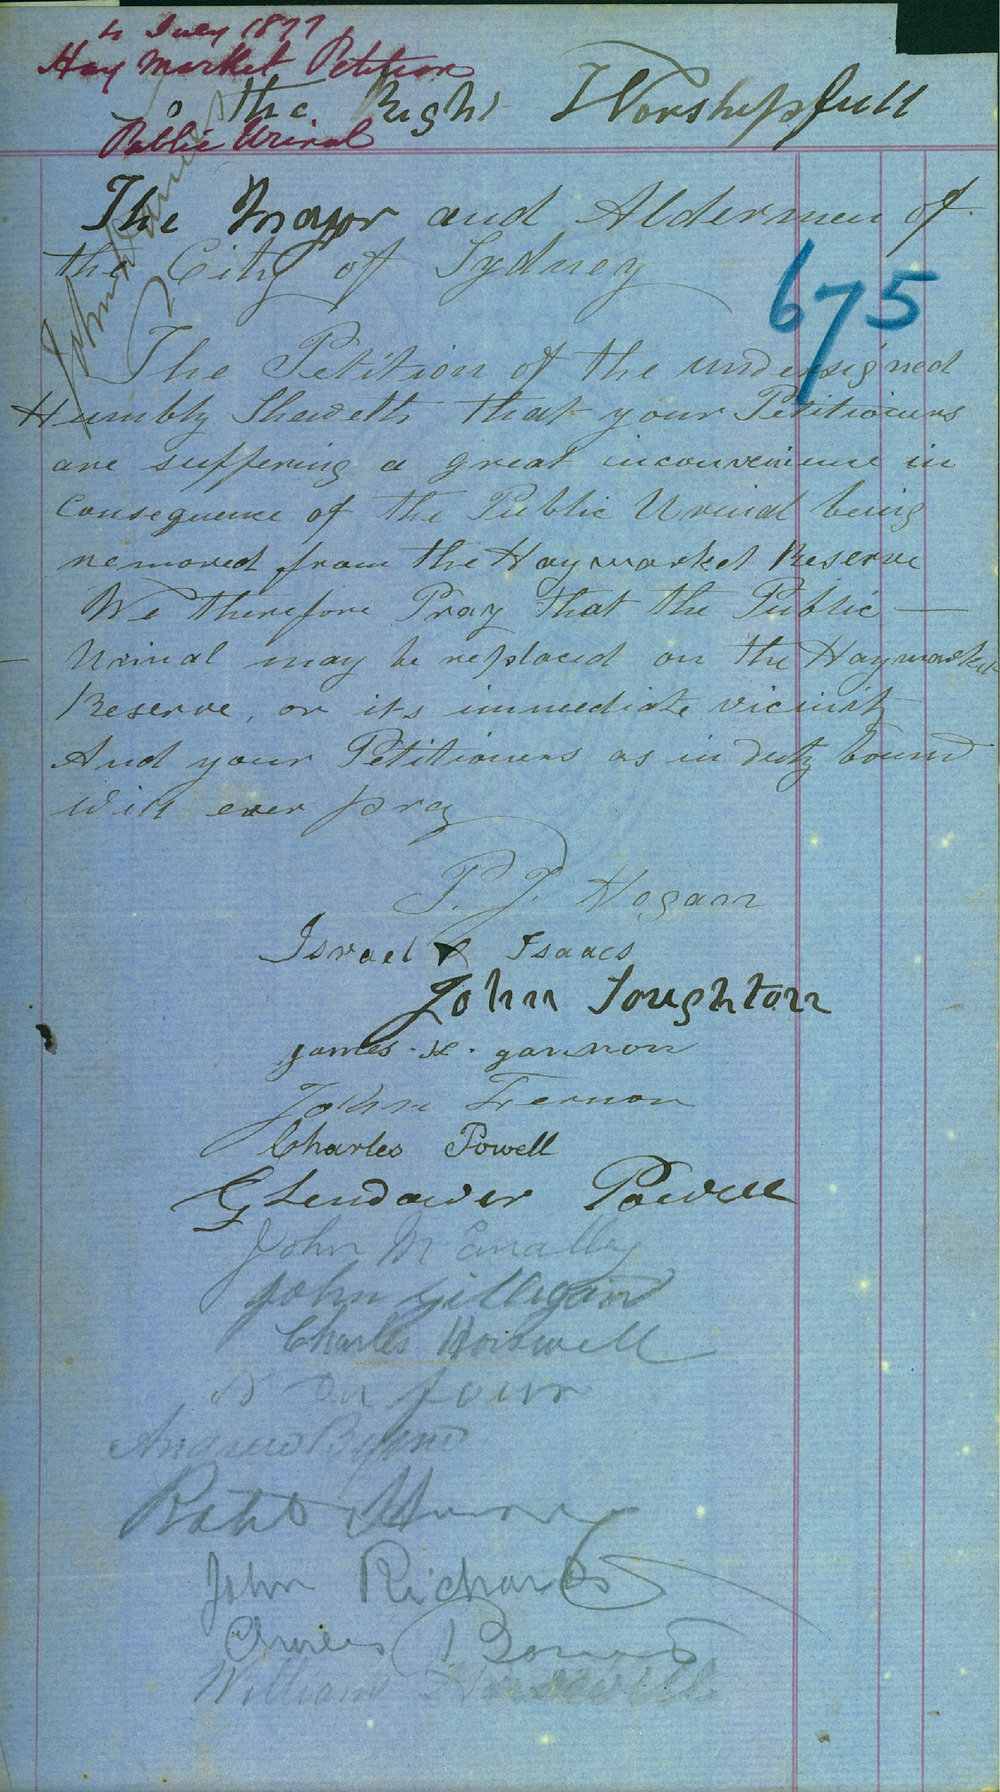 4 July 1877
Hay Market Petition
To the Right Worshipfull
Public Urinal
The Mayor and Aldermen of
the City of Sydney
675
The Petition of the undersigned
Humbly Sheweth that your Petitioners
are suffering a great inconvenience in
Consequence of the Public Urinal being
removed from the Haymarket Reserve
We therefore Pray that the Public
Urinal may be replaced on the Haymarket
Reserve, or its immediate vicinity
And your Petitioners as in duty bound
will ever pray
P. J. Hogan
Israel Isaacs
John Toughton
James. H. gannon
John Ternon
Charles Powell
Glendower Powell
John McAnally
John Gilligan
Charles Horswell
Andrew Byrne
Robt
John Richards
Charles
William Horswell
John